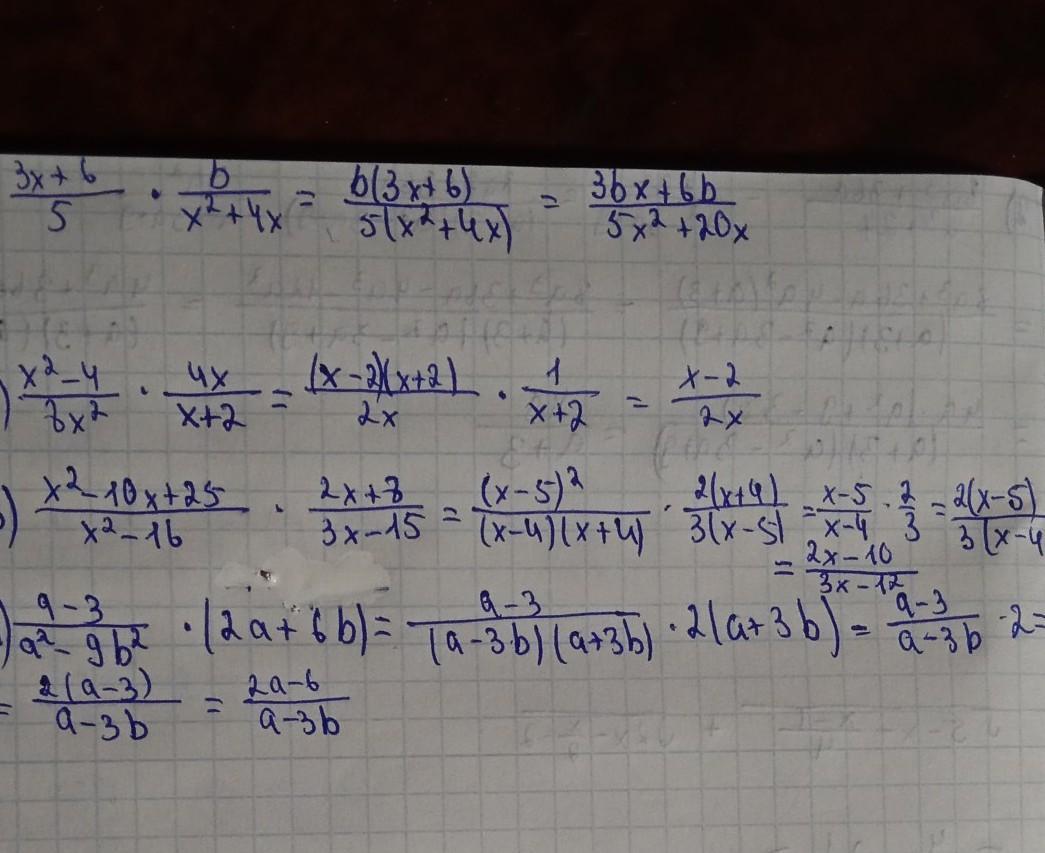 (3x+6)/5 · b/(x²+4x) = b(3x+6)/5(x²+4x) = (3bx+6b)/(5x²+20x)
) (x²-4)/8x² · 4x/(x+2) = (x-2)(x+2)/2x · 1/(x+2) = (x-2)/2x
) (x²-10x+25)/(x²-16) · (2x+8)/(3x-15) = (x-5)²/(x-4)(x+4) · 2(x+4)/3(x-5) = (x-5)/(x-4) · 2/3 = 2(x-5)/3(x-4
= (2x-10)/(3x-12)
) (a-3)/(a²-9b²) · (2a+6b) = (a-3)/(a-3b)(a+3b) · 2(a+3b) = (a-3)/(a-3b) · 2 =
= 2(a-3)/(a-3b) = (2a-6)/(a-3b)